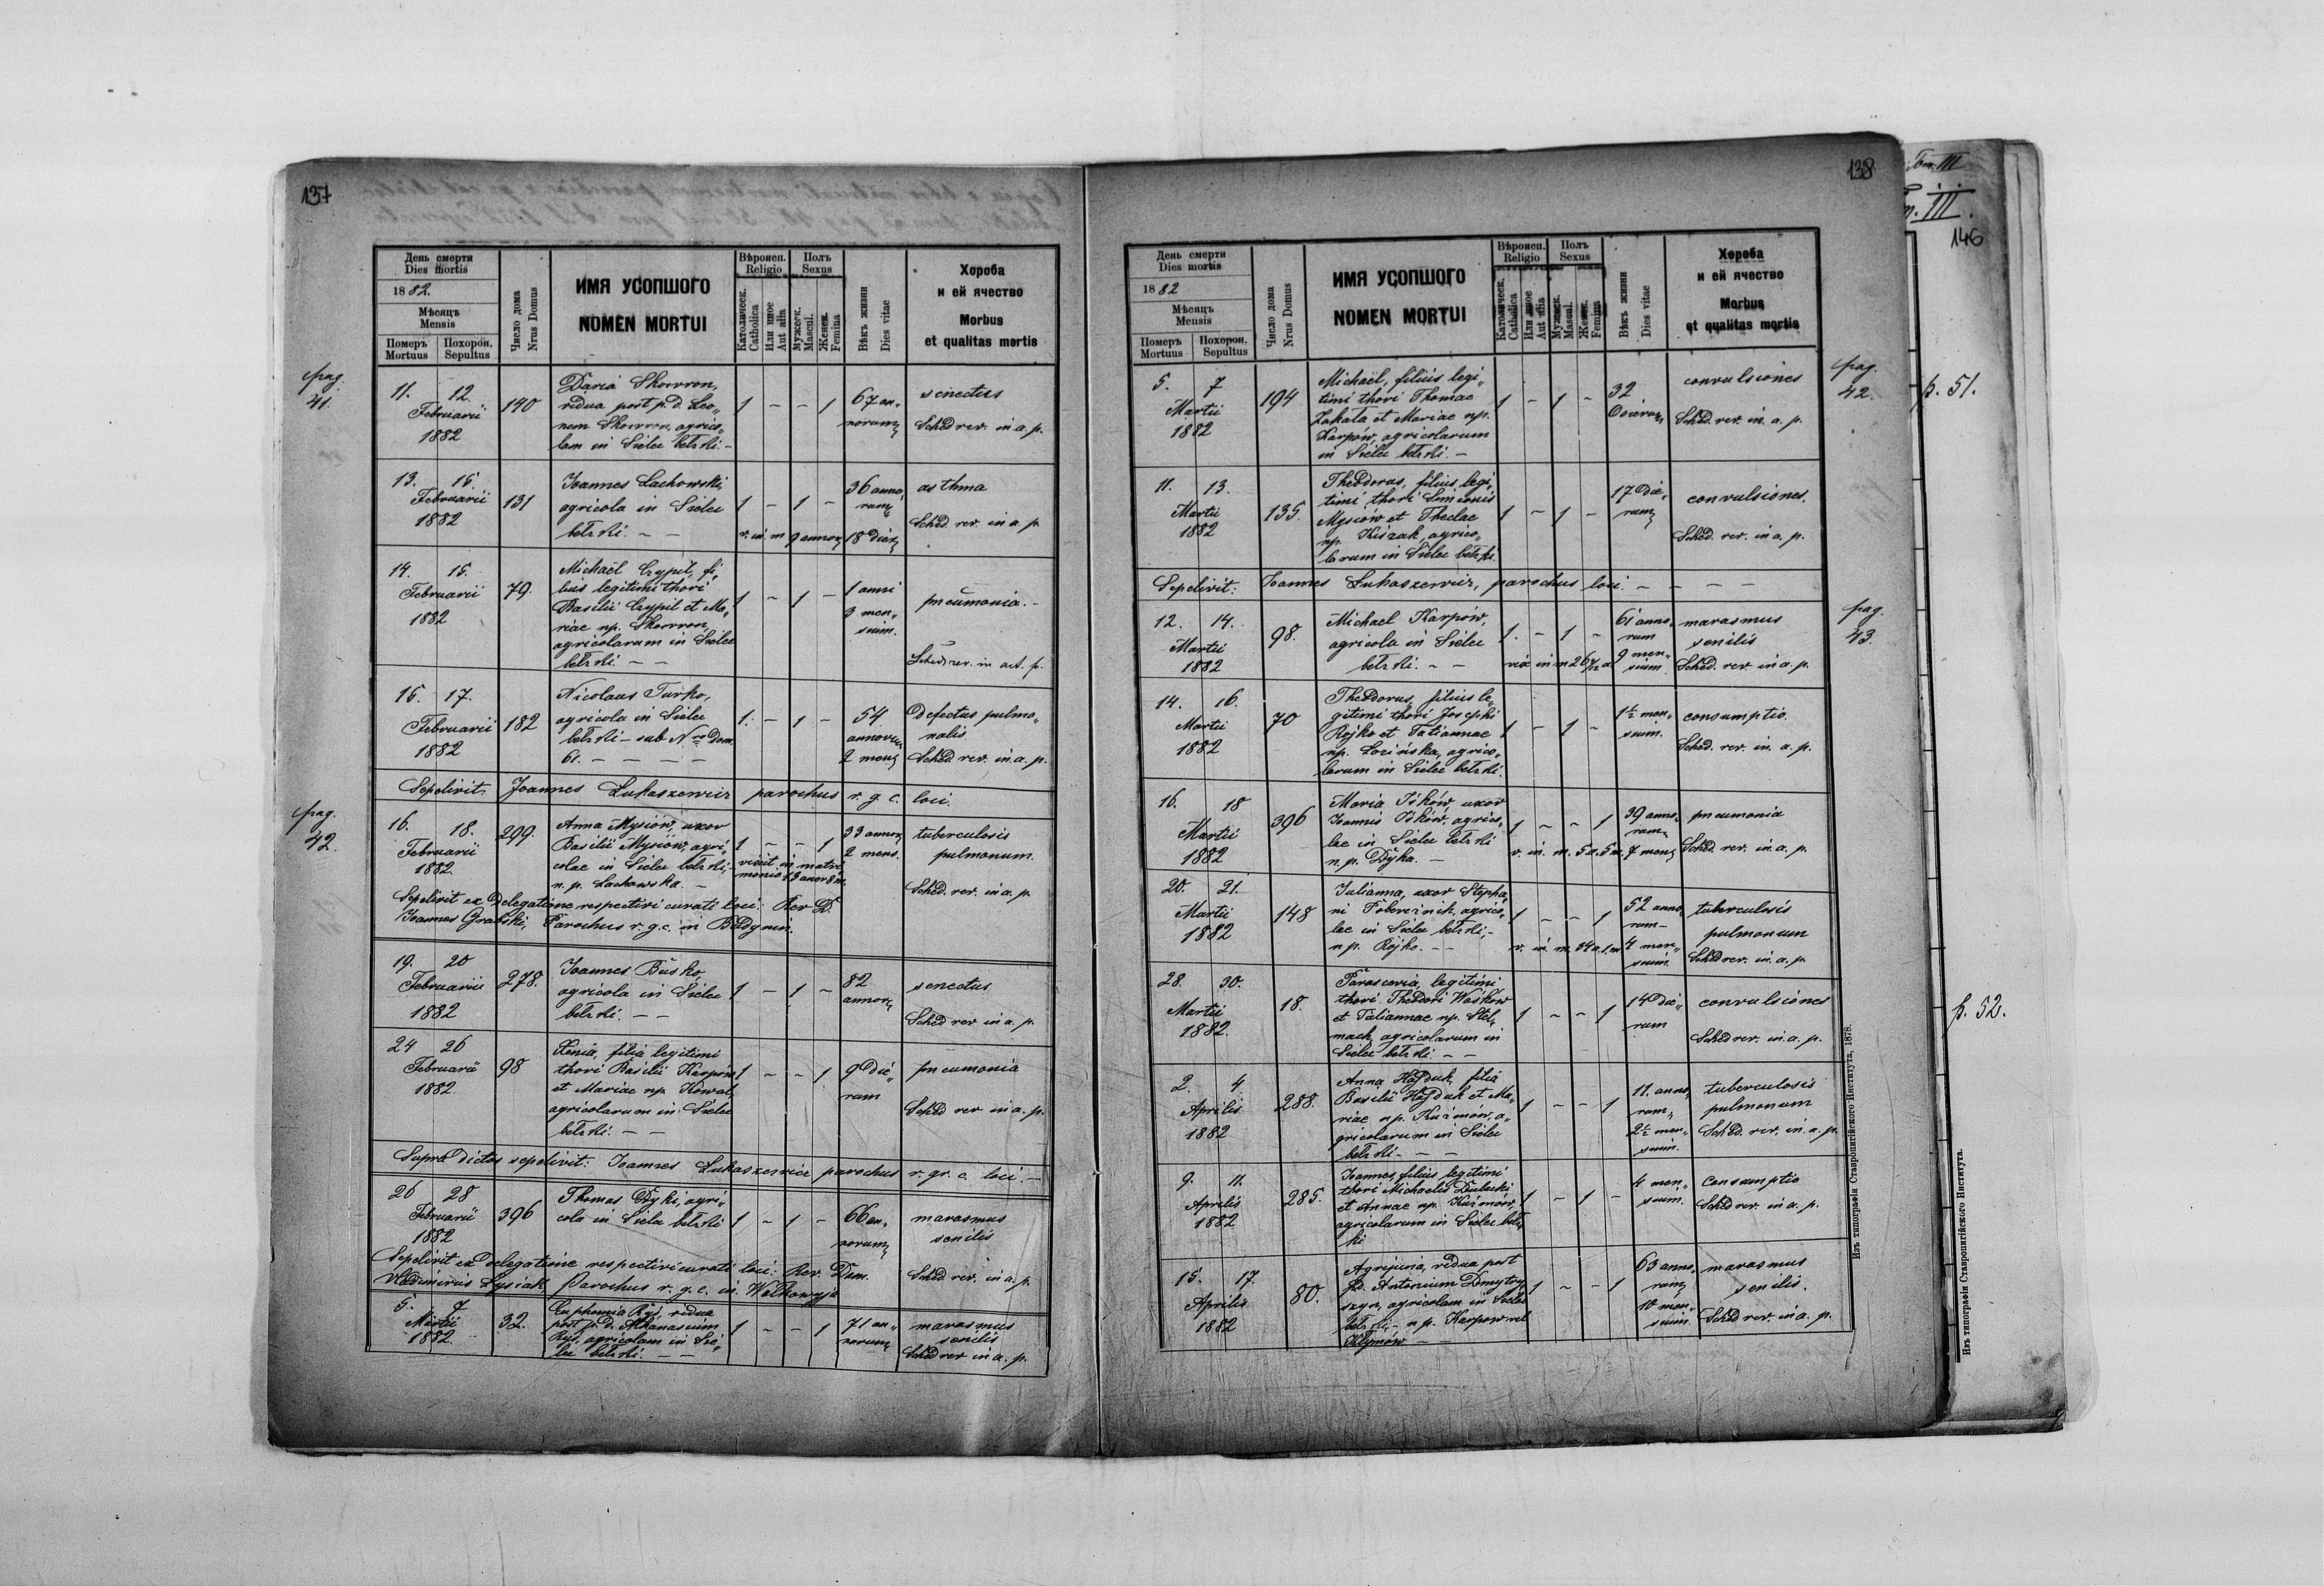 137
День смерти
Dies mortis
1882.
Мѣсяцъ
Mensis
Померъ
Mortuus
Похорон.
Sepultus
Число дома
Nrus Domus
ИМЯ УСОПШОГО
NOMEN MORTUI
Вѣроисп.
Religio
Католическ.
Catholica
Или иное
Aut alia
Полъ
Sexus
Мужеск.
Mascul.
Женск.
Femina
Вѣкъ жизни
Dies vitae
Хороба
и ей ячество
Morbus
et qualitas mortis
pag.
41.
11. 12.
Februarii
1882
140
Daria Skowron,
vidua post p. d. Leo„
nem Skowron, agrico„
lam in Sielec bełzki. –
1 – – 1
67 an„
norum
senectus
Sched rev. in a. p.
13. 15.
Februarii
1882
131
Joannes Lachowski,
agricola in Sielec
bełzki. – –
1 – 1 –
v. in. m 9 annor
36 anno„
rum
18 dier
asthma
Sched. rev. in a p.
14. 15.
Februarii
1882
79.
Michaël Czypil, fi„
lius legitimi thori
Basilii Czypil et Ma„
riae np. Skowron,
agricolarum in Sielec
bełzki. – –
1 – 1 –
1 anni
3 men„
sium.
pneumonia. –
Sched rev. in act. p.
15. 17.
Februarii
1882
182
Nicolaus Turko,
agricola in Sielec
bełzki – sub Nro Dom.
61. – – – –
1. – 1 –
54
annorum
2 mens
Defectus pulmo„
nalis
Sched rev. in a. p.
Sepelivit: Joannes Łukaszewicz parochus r. g. c. loci.
pag.
42.
16. 18.
Februarii
1882.
299.
Anna Mysiów, uxor
Basilii Mysiów, agri„
colae in Sielec bełzki, –
n. p. Lachowska. –
1 – – 1
vixit in matri„
monio 13 anor 8 m.
33 annor
2 mens.
tuberculosis
pulmonum.
Sched. rev. in a. p.
Sepelivit ex Delegatione respectivi curati loci: Rev D.
Joannes Grabski, Parochus r. g. c. in
19. 20
Februarii
1882
278.
Joannes Busko,
agricola in Sielec
bełzki. – –
1 – 1 –
82
annor
senectus
Sched rev in a. p.
24 26
Februarii
1882.
98
Xenia, filia legitimi
thori Basilii Karpów
et Mariae np. Kowal,
agricolarum in Sielec
bełzki. – –
1 – – 1
9 die„
rum
pneumonia
Sched rev in a. p.
Supra dictos sepelivit: Joannes Łukaszewicz parochus r. gr. c. loci. –
26 28
Februarii
1882
396
Thomas Dyki, agri„
cola in Sielec bełzki
1 – 1 –
66 an„
norum
marasmus
senilis
Sched rev. in a. p.
Sepelivit ex Delegatione respectivi curati loci: Rev. Dom.
Vladimirus Łysiak, Parochus r. g. c. in Wolkowyja
5. 7
Martii
1882.
32.
Euphemia Ryś, vidua
post p. d. Athanasium
Ryś, agricolam in Sie„
lec bełzki. – –
1 – – 1
71 an„
norum
marasmus
senilis
Sched rev in a. p.
138
День смерти
Dies mortis
1882
Мѣсяцъ
Mensis
Померъ
Mortuus
Похорон.
Sepultus
Число дома
Nrus Domus
ИМЯ УСОПШОГО
NOMEN MORTUI
Вѣроисп.
Religio
Католическ.
Catholica
Или иное
Aut alia
Полъ
Sexus
Мужеск.
Mascul.
Женск.
Femina
Вѣкъ жизни
Dies vitae
Хороба
и ей ячество
Morbus
et qualitas mortis
pag.
42.
5. 7
Martii
1882
194
Michaël, filius legi„
timi thori Thomae
Zakała et Mariae np.
Karpów, agricolarum
in Sielec bełzki. –
1 – 1 –
32
convulsiones
Sched. rev. in. a. p.
11. 13.
Martii
1882
135.
Theodorus, filius legi„
timi thori Simeonis
Mysiów et Theclae
np. Kiszak, agrico„
larum in Sielec bełzki.
1 – 1 –
17 die„
rum
convulsiones.
Sched. rev. in a. p.
Sepelivit: Joannes Łukaszewicz, parochus loci. – – – –
pag.
43.
12. 14.
Martii
1882
98.
Michael Karpów,
agricola in Sielec
bełzki. – –
1. – 1 –
61 anno„
rum
9 men„
sium
marasmus
senilis
Sched. rev in a. p.
14. 16.
Martii
1882
70
Theodorus, filius le„
gitimi thori Josephi
Rójko et Tatiannae
np. Łozińska, agrico„
larum in Sielec bełzki.
1 – 1 –
1½ men„
sium.
consumptio.
Sched. rev. in. a. p.
16. 18
Martii
1882
396
Maria Ićków, uxor
Joannis Ićków, agrico„
lae in Sielec bełzki
n. p. Dyka. –
1 – – 1
v. in. m. 5 a. 5 m.
39 anno„
rum
7 mens
pneumonia
Sched. rev. in a. p.
20. 21.
Martii
1882
148
Julianna, uxor Stepha„
ni agrico„
lae in Sielec bełzki, –
n p. Rójko. – –
1 – – 1
v. in. m. 34 a. 1. m
52 anno„
rum –
4 men„
sium.
tuberculosis
pulmonum
Sched rev. in. a. p.
28. 30.
Martii
1882.
18.
Parascevia, legitimi
thori Theodori Waśków
et Tatiannae np. Stel„
mach, agricolarum in
Sielec bełzki. – –
1 – – 1
14 die„
rum
convulsiones
Sched rev. in. a. p.
2. 4
Aprilis
1882
288.
Anna Hajduk, filia
Basilii Hajduk et Ma„
riae n p. Kuźmów, a„
gricolarum in Sielec
bełzki – – –
1 – – 1
11. anno„
rum,
2½ men„
sium.
tuberculosis
pulmonum
Sched. rev. in. a. p.
9. 11.
Aprilis
1882
285.
Joannes, filius legitimi
thori Michaelis
et Annae np. Kuźmów,
agricolarum in Sielec bełz„
ki
1 – 1 –
4 men„
sium.
consumptio
Sched rev. in a. p.
15. 17.
Aprilis
1882
80.
Agripina, vidua post
p. d. Antonium Dmytry„
szyn, agricolam in Sielec
bełzki, – n p. Karpow vel
Klymów –
1 – – 1
63 anno„
rum
10 men„
sium.
marasmus
senilis.
Sched rev. in a. p.
Изъ типографіи Ставропигійского Института, 1878.
Tom. III
III.
146
p. 51.
p. 52.
Изъ типографіи Ставропигійского Института.